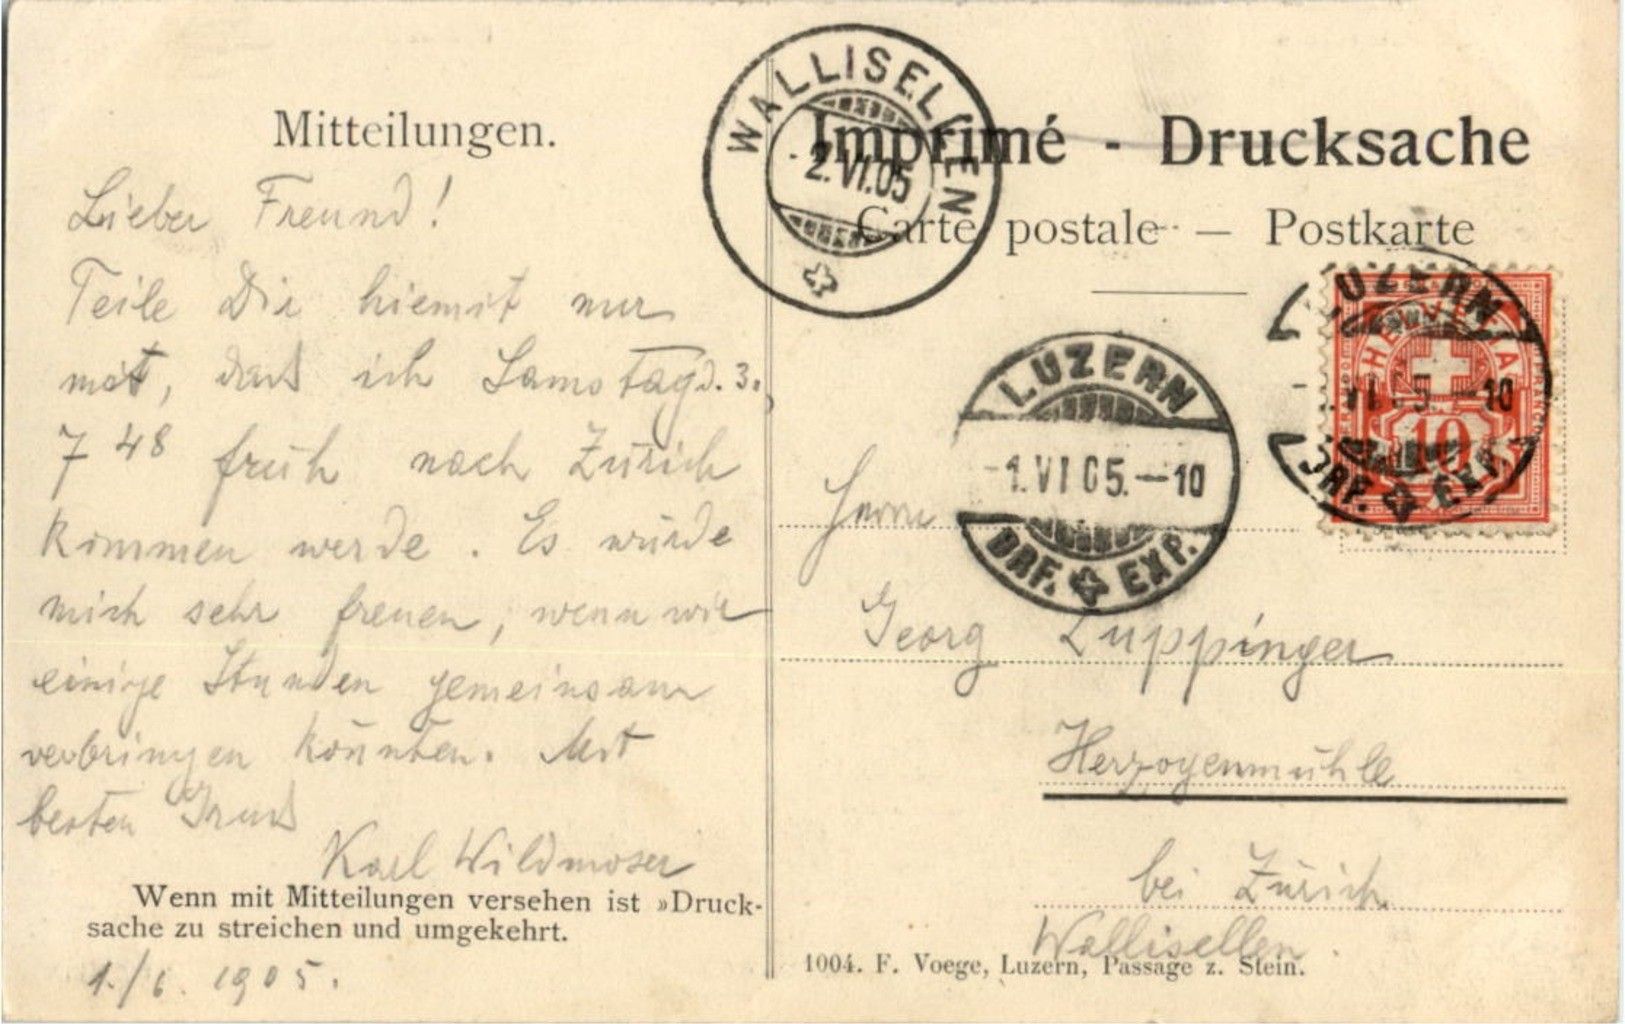 Mitteilungen.
Lieber Freund!
Teile Die hiemit nur
mit, dass ich Samstag d. 3.
7 48 früh nach Zürich
kommen werde. Es würde
mich sehr freuen, wenn wir
einige Stunden gemeinsam
verbringen könnten. Mit
besten Gruss
Karl Wildmoser
Wenn mit Mitteilungen versehen ist »Druck-
sache zu streichen und umgekehrt.
1./6. 1905.
WALLISELLEN
2.VI.05
Imprimé - Drucksache
Carte postale — Postkarte
LUZERN
-1.VI.05.-10
BRF. EXP.
HELVETIA
10
LUZERN
-1.VI.05.-10
BRF. EXP.
Herrn
Georg Luppinger
Herzogenmühle
bei Zürich
Wallisellen.
1004. F. Voege, Luzern, Passage z. Stein.